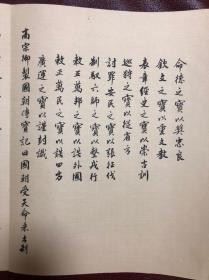 命德之寶以奬忠良
欽文之寶以重文教
表章經史之寶以崇古訓
巡狩之寶以從省方
討罪安民之寶以張征伐
制馭六師之寶以整戎行
敕正萬邦之寶以誥外國
敕正萬民之寶以誥四方
廣運之寶以謹封識
高宗御製國朝傳寶記曰國朝受天命采古制